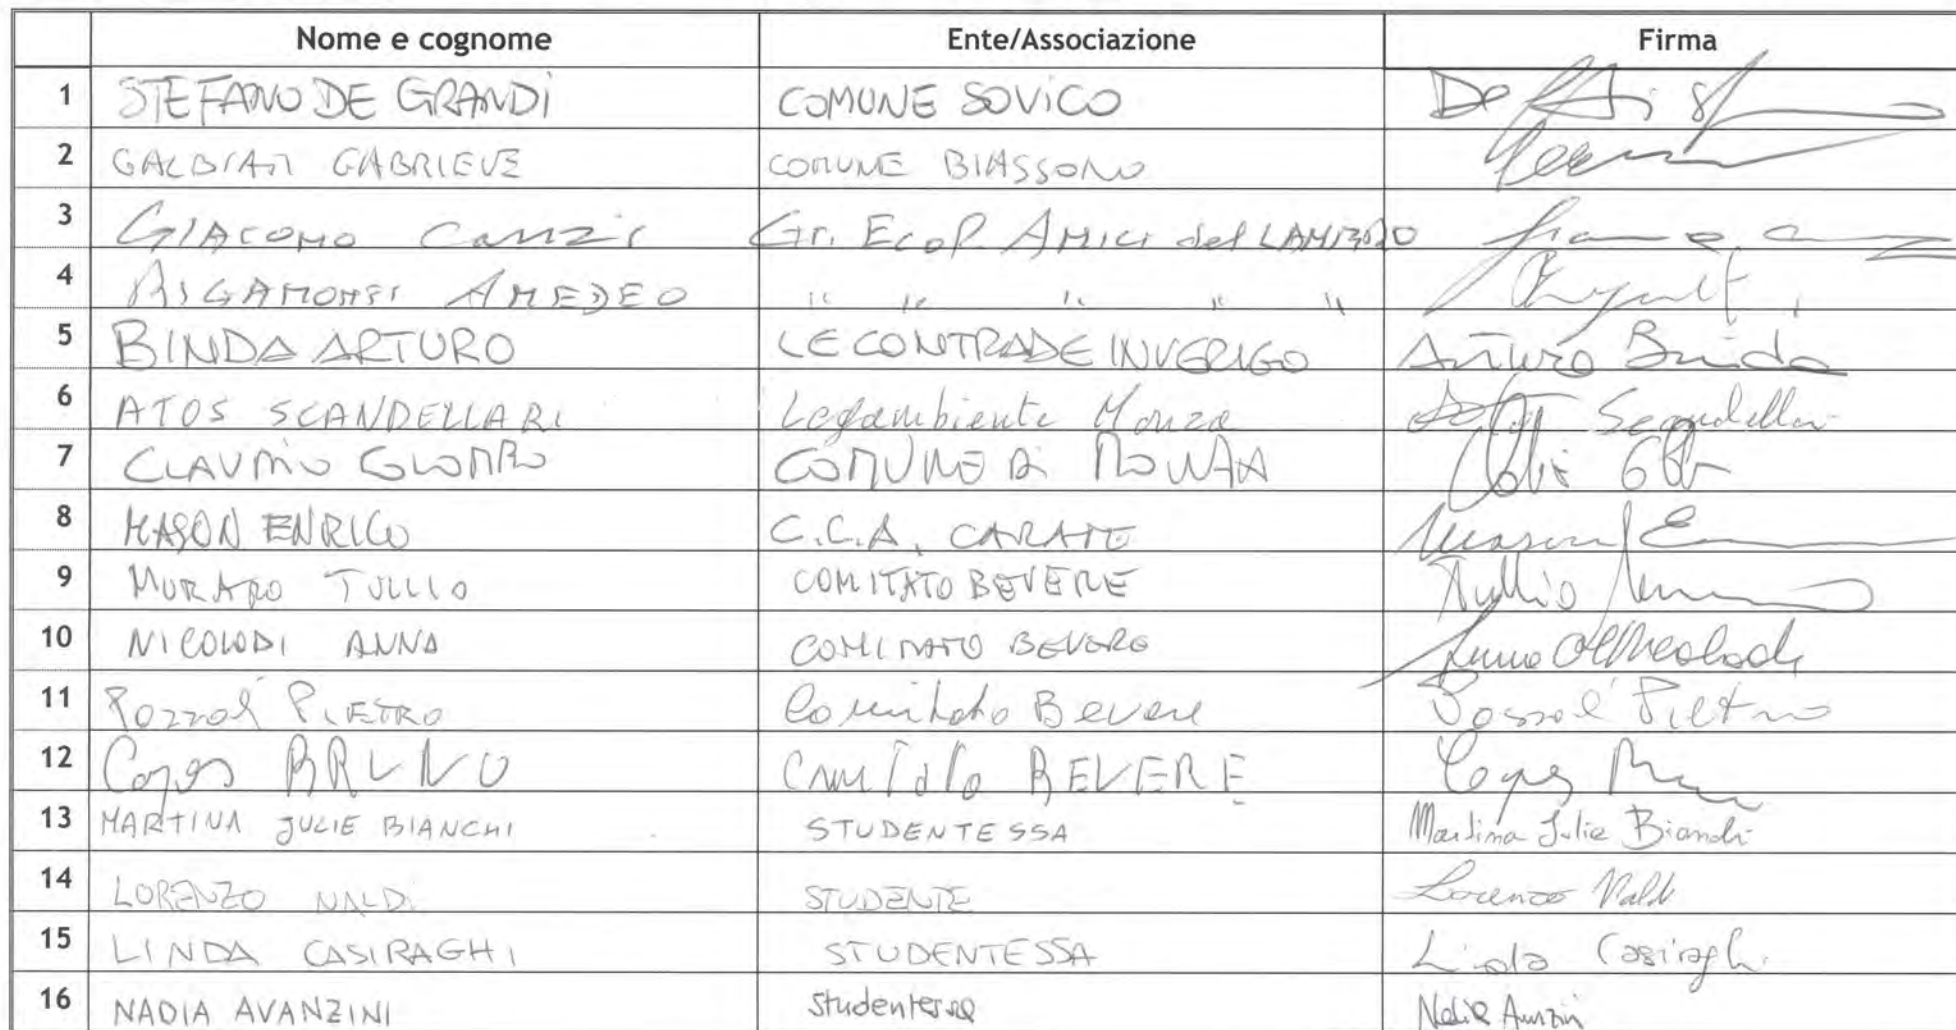 Nome e cognome Ente/Associazione Firma
1 STEFANO DE GRANDI COMUNE SOVICO De
2 GALBIATI GABRIELE COMUNE BIASSONO
3 GIACOMO Canzi Gr. Ecol. AMICI del LAMBRO
4 RIGAMONTI AMEDEO " " " " "
5 BINDA ARTURO LE CONTRADE INVERIGO Arturo Binda
6 ATOS SCANDELLARI Legambiente Monza Scandellari
7 CLAUDIO COLOMBO COMUNE DI
8 MASON ENRICO C.C.A. CARATE Mason E
9 MURARO TULLIO COMITATO BEVERE Tullio
10 NICOLODI ANNA COMITATO BEVERE
11 Pozzoli PIETRO Comitato Bevere Pozzoli Pietro
12 BRUNO Comitato BEVERE
13 MARTINA JULIE BIANCHI STUDENTESSA Martina Julie Bianchi
14 LORENZO NALDI STUDENTE Lorenzo Naldi
15 LINDA CASIRAGHI STUDENTESSA Linda Casiraghi
16 NADIA AVANZINI studentessa Nadia Avanzini